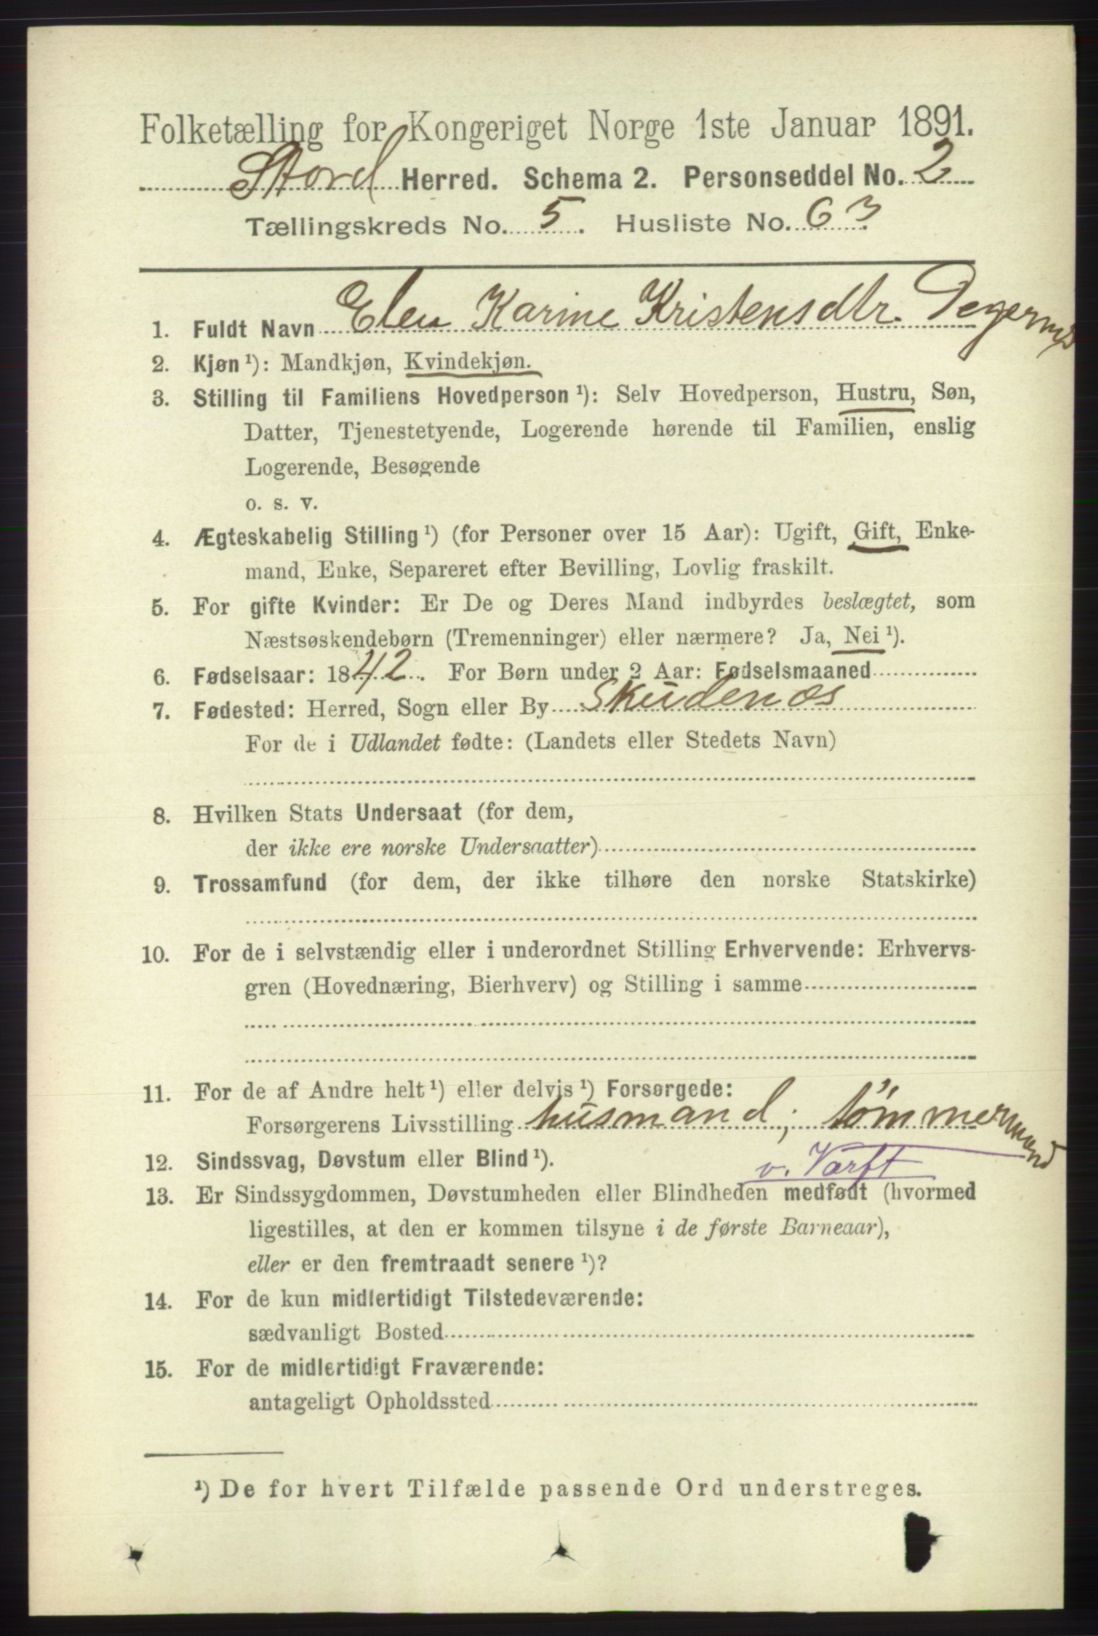 Folketælling for Kongeriget Norge 1ste Januar 1891.
Stord Herred. Schema 2. Personseddel No. 2
Tællingskreds No. 5. Husliste No. 63.
1. Fuldt Navn Elen Karine Kristensdtr. Degernes
2. Kjøn ¹): Mandkjøn, Kvindekjøn.
3. Stilling til Familiens Hovedperson ¹): Selv Hovedperson, Hustru, Søn,
Datter, Tjenestetyende, Logerende hørende til Familien, enslig
Logerende, Besøgende
o. s. v.
4. Ægteskabelig Stilling ¹) (for Personer over 15 Aar): Ugift, Gift, Enke-
mand, Enke, Separeret efter Bevilling, Lovlig fraskilt.
5. For gifte Kvinder: Er De og Deres Mand indbyrdes beslægtet, som
Næstsøskendebørn (Tremenninger) eller nærmere? Ja, Nei ¹).
6. Fødselsaar: 1842. For Børn under 2 Aar: Fødselsmaaned
7. Fødested: Herred, Sogn eller By Skudenæs
For de i Udlandet fødte: (Landets eller Stedets Navn)
8. Hvilken Stats Undersaat (for dem,
der ikke ere norske Undersaatter)
9. Trossamfund (for dem, der ikke tilhøre den norske Statskirke)
10. For de i selvstændig eller i underordnet Stilling Erhvervende: Erhvervs-
gren (Hovednæring, Bierhverv) og Stilling i samme
11. For de af Andre helt ¹) eller delvis ¹) Forsørgede:
Forsørgerens Livsstilling husmand; tømmermand
v. Værft
12. Sindssvag, Døvstum eller Blind ¹).
13. Er Sindssygdommen, Døvstumheden eller Blindheden medfødt (hvormed
ligestilles, at den er kommen tilsyne i de første Barneaar),
eller er den fremtraadt senere ¹)?
14. For de kun midlertidigt Tilstedeværende:
sædvanligt Bosted
15. For de midlertidigt Fraværende:
antageligt Opholdssted
¹) De for hvert Tilfælde passende Ord understreges.